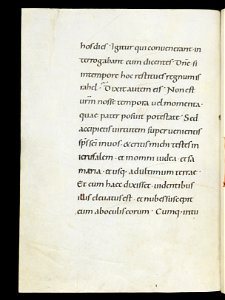 hos dies · Igitur qui convenerant · in
terrogabant eum dicentes · Dne si
in tempore hoc restitues regnum is
rahel · Dixit autem eis · Non est
urm nosse tempora vel momenta ·
quae pater posuit potestate · Sed
accipietis virtutem super venientis
sps sci in vos · & eritis mihi testes in
ierusalem · et in omni iudea · et sa
maria · et usq · ad ultimum terrae ·
Et cum haec dixisset · videntibus
illis elevatus est · et nubes suscepit
eum ab oculis eorum · Cumq · intu